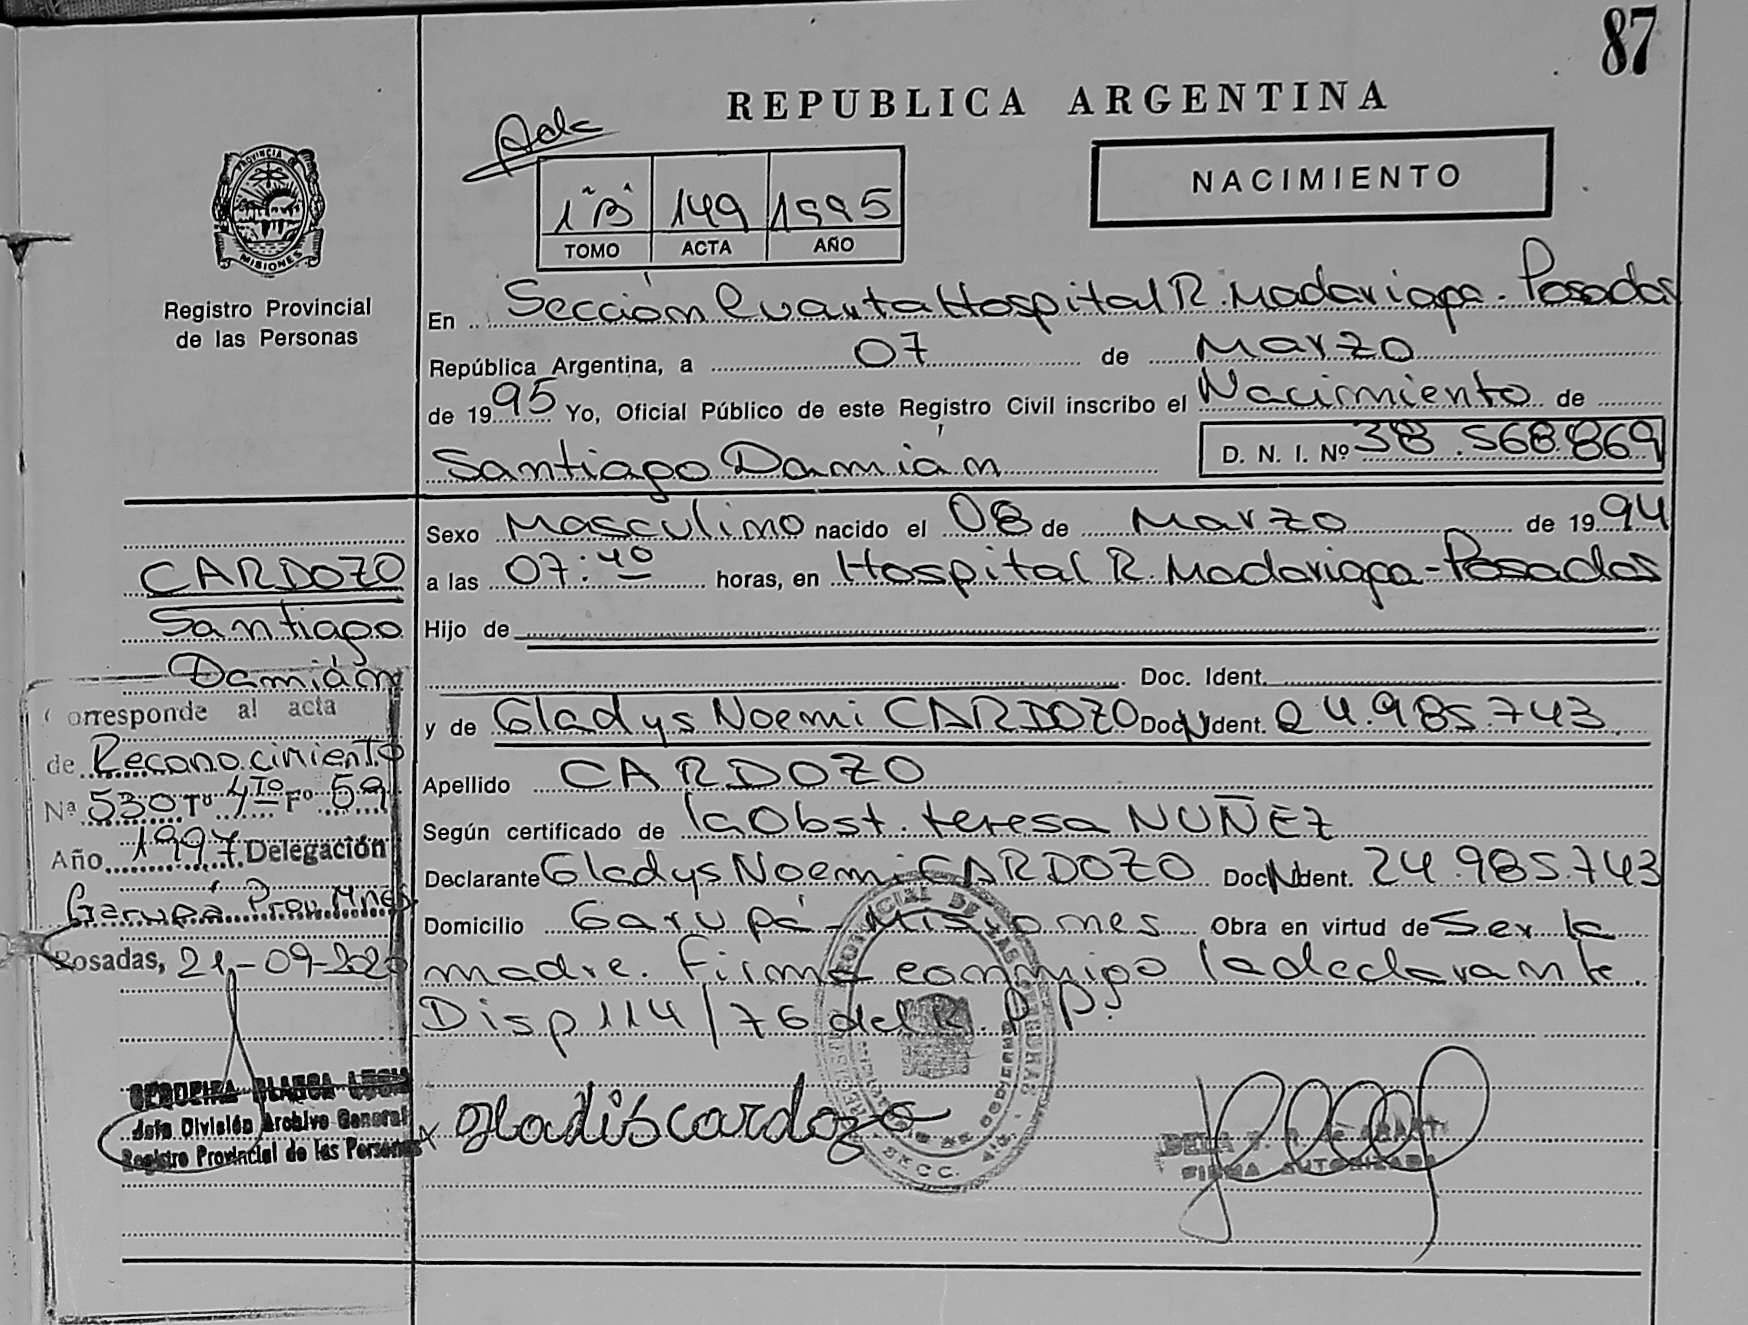 87
REPUBLICA ARGENTINA
NACIMIENTO
1 "B" 149 1995
TOMO ACTA AÑO
PROVINCIA DE
MISIONES
Registro Provincial
de las Personas
En Sección Cuarta Hospital R. Madariaga - Posadas
República Argentina, a 07 de Marzo
de 1995 Yo, Oficial Público de este Registro Civil inscribo el Nacimiento de
Santiago Damián D. N. I. Nº 38.568.869
Sexo Masculino nacido el 08 de Marzo de 1994
a las 07:40 horas, en Hospital R. Madariaga - Posadas
Hijo de
Doc. Ident.
y de Gladys Noemi CARDOZO Doc. Ident. 24.985.743
Apellido CARDOZO
Según certificado de la Obst. teresa NUÑEZ
Declarante Gladys Noemi CARDOZO Doc. Ident. 24.985.743
Domicilio Garupá - Misiones Obra en virtud de Ser la
madre. Firma conmigo la declarante
Disp 114/76 del R. P. P.
gladis cardozo
SECC.
FIRMA AUTORIZADA
CARDOZO
Santiago
Damián
Corresponde al acta
de Reconocimiento
Nª 530 Tº 4to Fº 59
Año 1997 Delegación
Garupá Prov. Mnes
Posadas, 21-09-2020
Jefe División Archivo General
Registro Provincial de las Personas